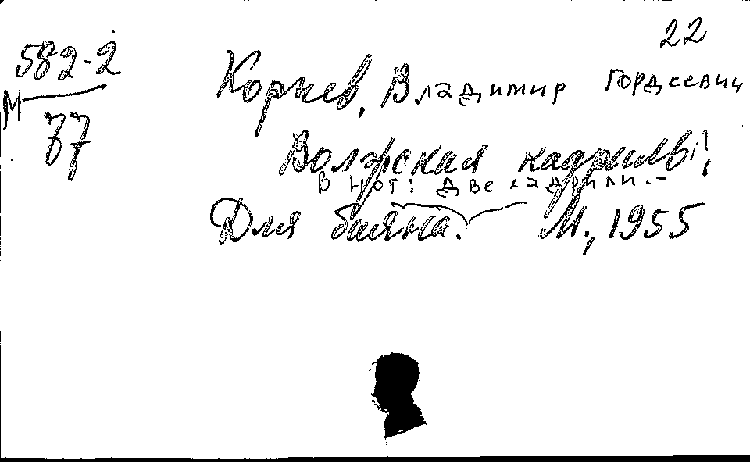 22
582-2
М
77
Корнев, Владимир Гордеевич
Волжская кадриль!;
в нот: Две кадрили.-
Для баяна. М., 1955